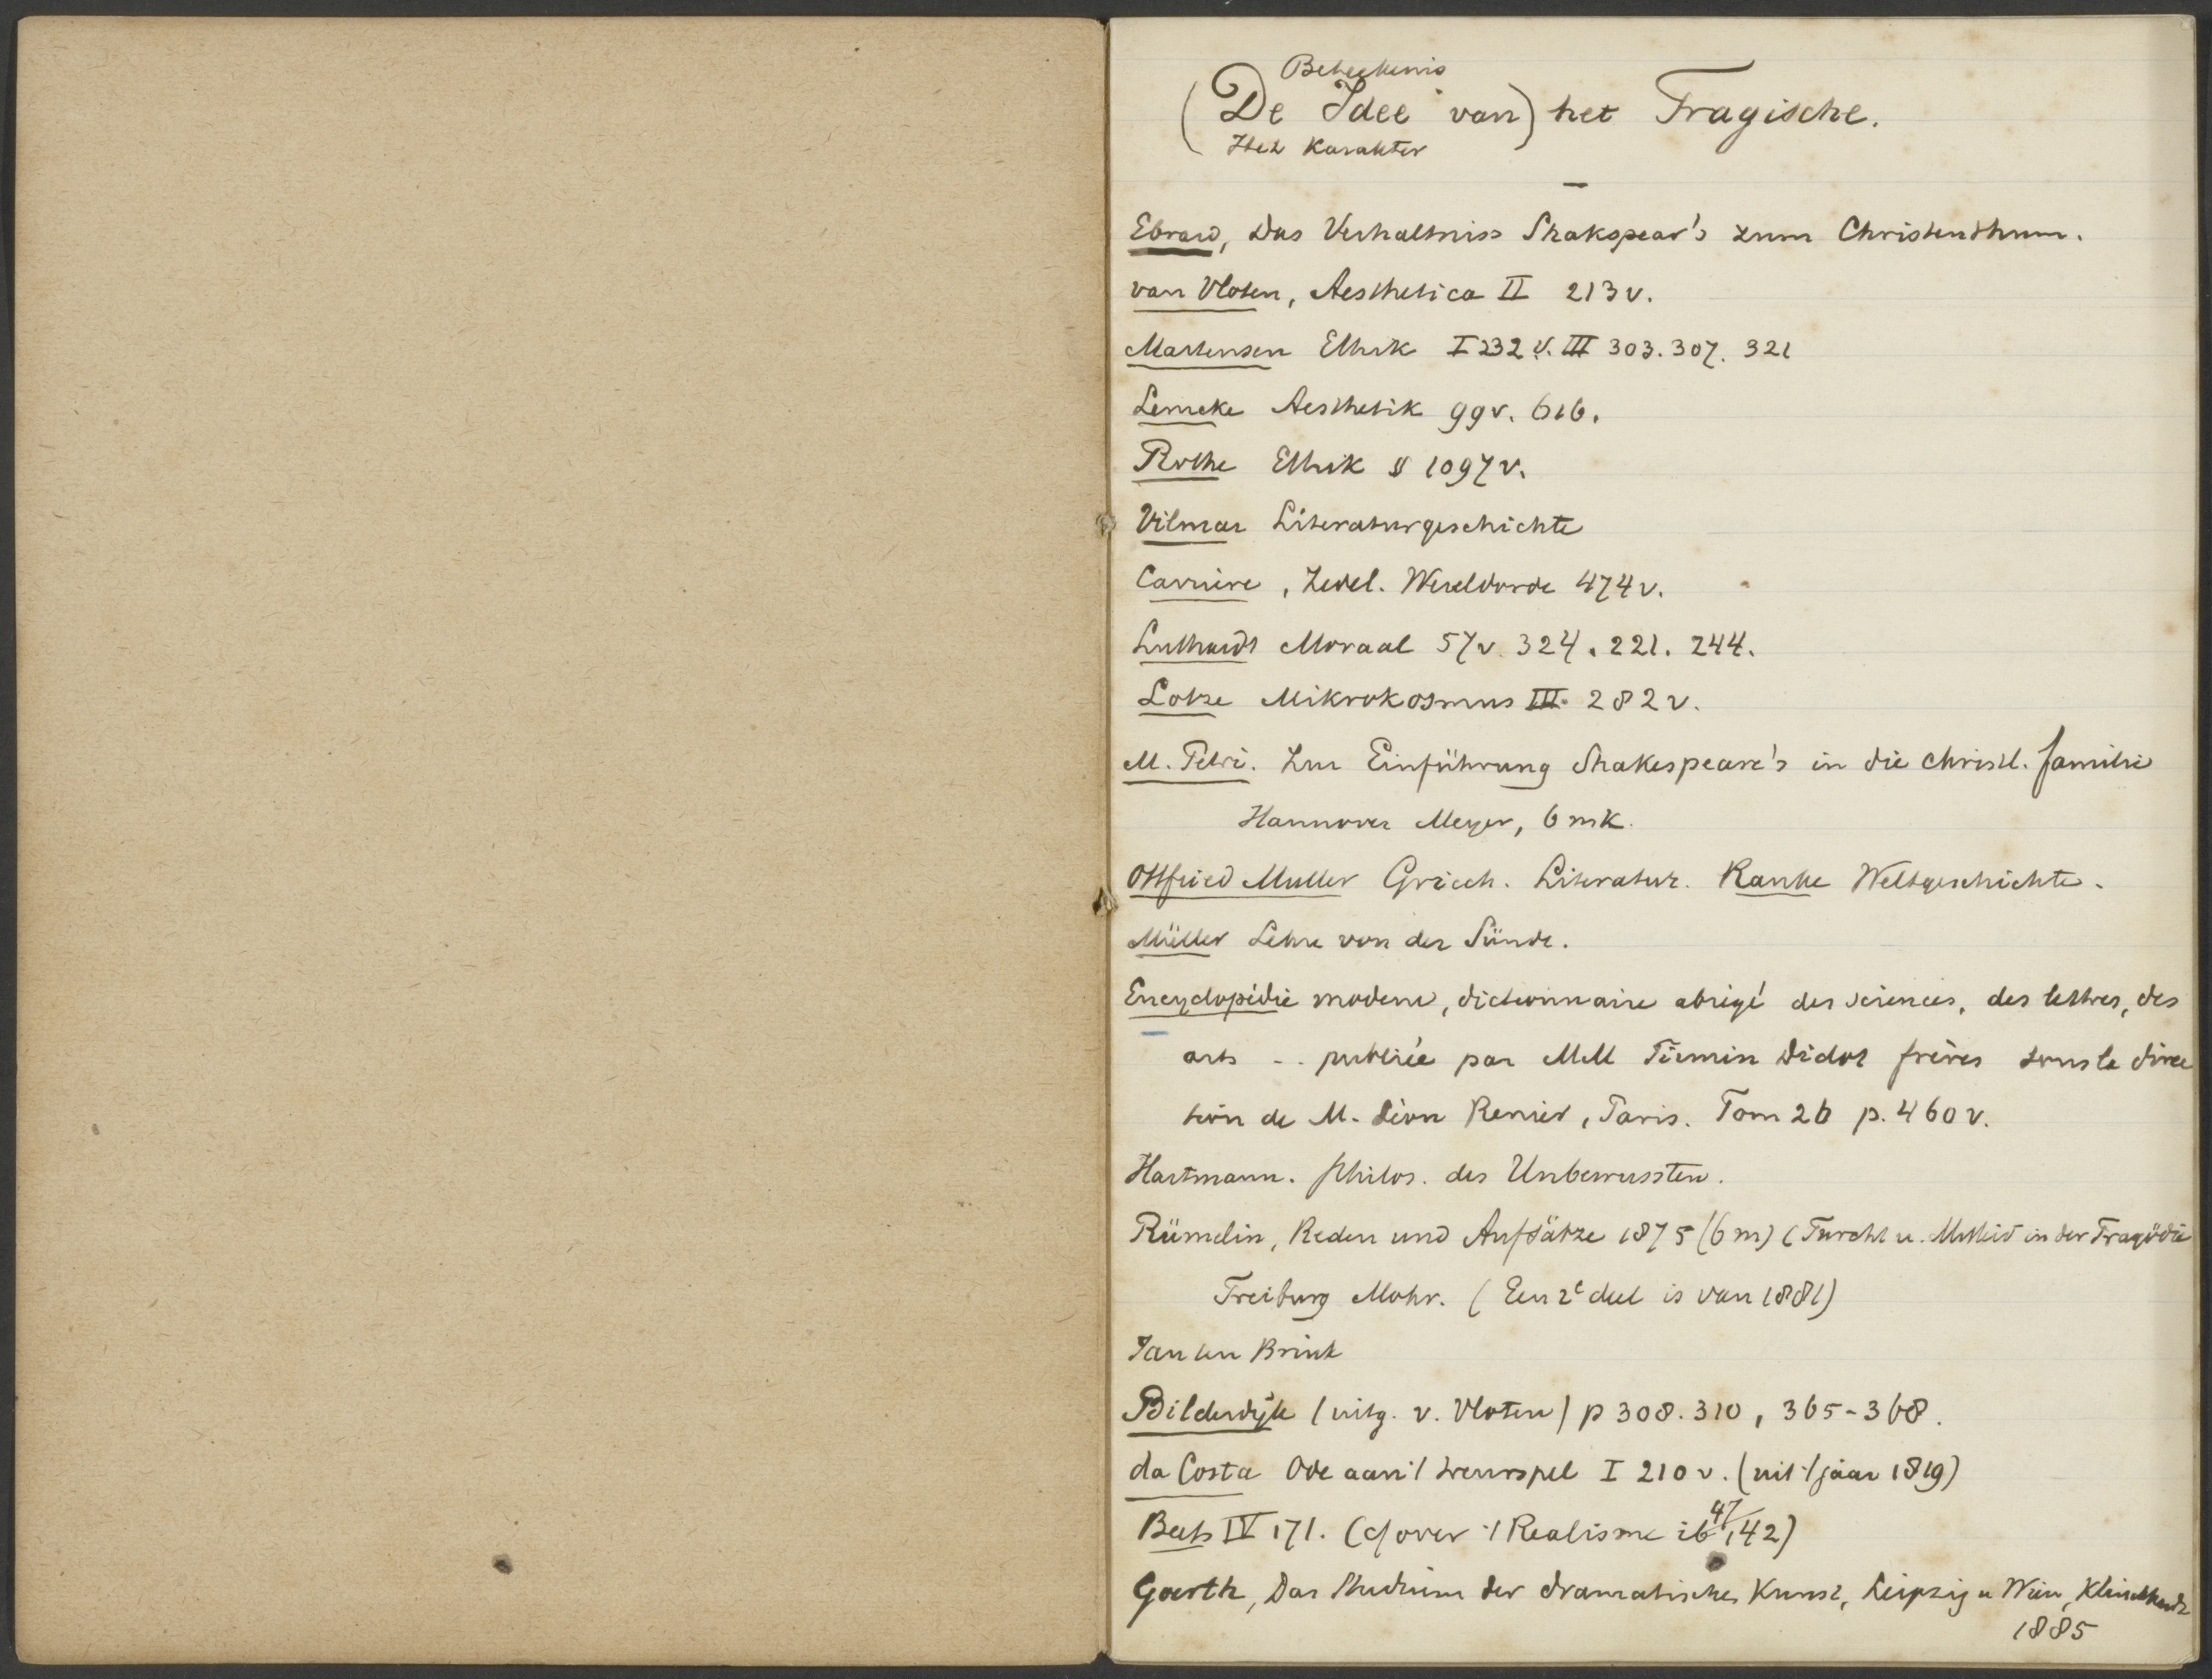 Beteekenis
(De Idee van) het Tragische.
Het Karakter
Ebrard, Das Verhaltniss Shakspear's zum Christenthum.
van Vloten, Aesthetica II 213 v.
Martensen Ethik I 232 v. III 303. 307. 321
Lemcke Aesthetik 99 v. 616.
Rothe Ethik § 1097 v.
Vilmar Literaturgeschichte
Carrière, Zedel. Wereldorde 474 v.
Luthardt Moraal 57 v. 324. 221. 244.
Lotze Mikrokosmus III. 282 v.
M. Petri. Zur Einführung Shakespeare's in die christl. familie
Hannover Meyer, 6 mk.
Ottfried Muller Griech. Literatur. Ranke Weltgeschichte.
Müller Lehre von der Sünde.
Encyclopédie moderne, dictionnaire abrégé des sciences, des lettres, des
arts .. publiée par MM Firmin Didot frères sous la direc
tion de M. Léon Renier, Paris. Tom 26 p. 460 v.
Hartmann. philos. des Unbewussten.
Rümelin, Reden und Aufsätze 1875 (6 m) (Furcht u. Mitleid in der Tragödie
Freiburg Mohr. (Een 2e deel is van 1881)
Jan ten Brink
Bilderdijk (uitg. v. Vloten) p 308. 310, 365-368.
da Costa Ode aan 't treurspel I 210 v. (uit 't jaar 1819)
Beets IV 171. (cf over 't Realisme ib 47, 42)
Goerth, Das Studium der dramatischen Kunst, Leipzig u Wien, Klinkhardt
1885